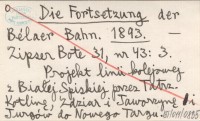 Die Fortsetzung der
Bélaer Bahn. 1893. —
Zipser Bote 31, nr 43: 3.
Projekt linii kolejowej
z Białej Spiskiej przez Tatrz.
Kotlinę Zdziar i Jaworzynę i
Jurgów do Nowego Targu.